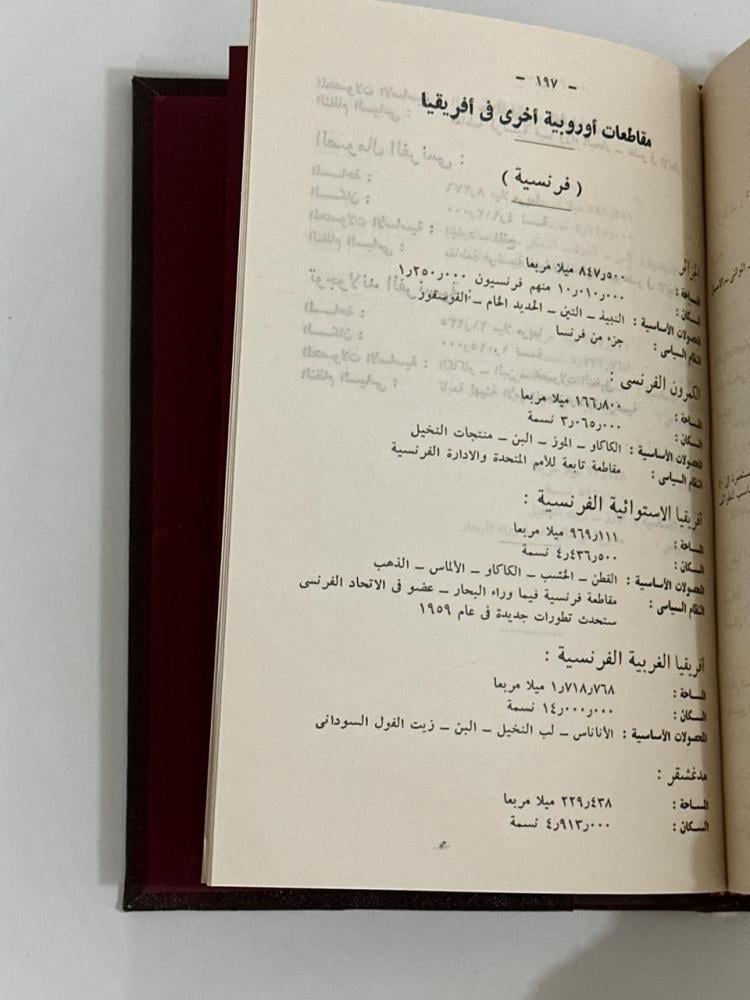 — ١٩٧ —
مقاطعات أوروبية أخرى فى أفريقيا
( فرنسية )
الجزائر
المساحة : ٨٤٧ر٥٠٠ ميلا مربعا
السكان : ١٠ر٠١٠ر٠٠٠ منهم فرنسيون ١ر٢٥٠ر٠٠٠
المحصولات الأساسية : النبيذ — التين — الحديد الخام — الفوسفور
النظام السياسى : جزء من فرنسا
الكمرون الفرنسى :
المساحة : ١٦٦ر٨٠٠ ميلا مربعا
السكان : ٣ر٠٦٥ر٠٠٠ نسمة
المحصولات الأساسية : الكاكاو — الموز — البن — منتجات النخيل
النظام السياسى : مقاطعة تابعة للأمم المتحدة والادارة الفرنسية
أفريقيا الاستوائية الفرنسية :
المساحة : ٩٦٩ر١١١ ميلا مربعا
السكان : ٤ر٤٣٦ر٥٠٠ نسمة
المحصولات الأساسية : القطن — الخشب — الكاكاو — الألماس — الذهب
النظام السياسى : مقاطعة فرنسية فيما وراء البحار — عضو فى الاتحاد الفرنسى
ستحدث تطورات جديدة فى عام ١٩٥٩
أفريقيا الغربية الفرنسية :
المساحة : ١ر٧١٨ر٧٦٨ ميلا مربعا
السكان : ١٤ر٠٠٠ر٠٠٠ نسمة
المحصولات الأساسية : الأناناس — لب النخيل — البن — زيت الفول السودانى
مدغشقر :
المساحة : ٢٢٩ر٤٣٨ ميلا مربعا
السكان : ٤ر٩١٣ر٠٠٠ نسمة